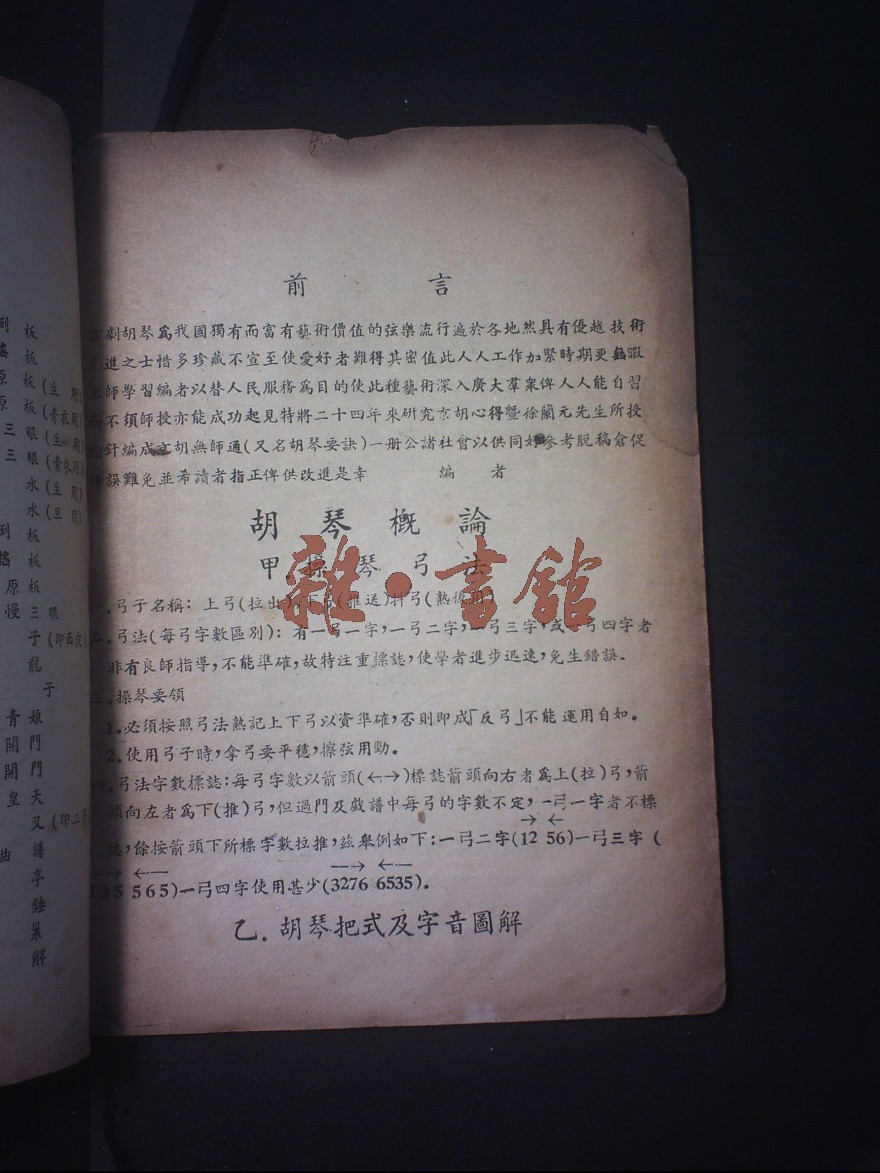 前言
劇胡琴為我國獨有而富有藝術價值的弦樂流行遍於各地然具有優越技術
進之士惜多珍藏不宣至使愛好者難得其密值此人人工作加緊時期更無暇
師學習編者以替人民服務為目的使此種藝術深入廣大羣衆俾人人能自習
不須師授亦能成功起見特將二十四年來研究京胡心得暨徐蘭元先生所授
針編成京胡無師通(又名胡琴要訣)一册公諸社會以供同好參考脫稿倉促
誤難免並希讀者指正俾供改進是幸 編者
胡琴概論
甲.操琴弓法
.弓子名稱: 上弓(拉出),下弓(推送)抖弓(熱後用)
.弓法(每弓字數區別): 有一弓一字,一弓二字,一弓三字,或一弓四字者
非有良師指導,不能準確,故特注重標誌,使學者進步迅速,免生錯誤.
三.操琴要領
1.必須按照弓法熟記上下弓以資準確,否則即成「反弓」不能運用自如。
2.使用弓子時,拿弓要平穩,擦弦用勁。
.弓法字數標誌:每弓字數以箭頭(←→)標誌箭頭向右者為上(拉)弓,箭
頭向左者為下(推)弓,但過門及戲譜中每弓的字數不定,一弓一字者不標
→ ←
誌,餘按箭頭下所標字數拉推,兹舉例如下:一弓二字(12 56)一弓三字(
→ ← → ←
35 565)一弓四字使用甚少(3276 6535)。
乙.胡琴把式及字音圖解
到板
搖板
原板(生用)
原板(青衣用)
三眼(生用)
三眼(青衣用)
水(生用)
水(旦用)
到板
搖板
原板
慢三眼
子(即西皮
龍
子
青娘
開門
開門
皇天
又(即二
曲譜
亭
錘
杲
解
雜·書館